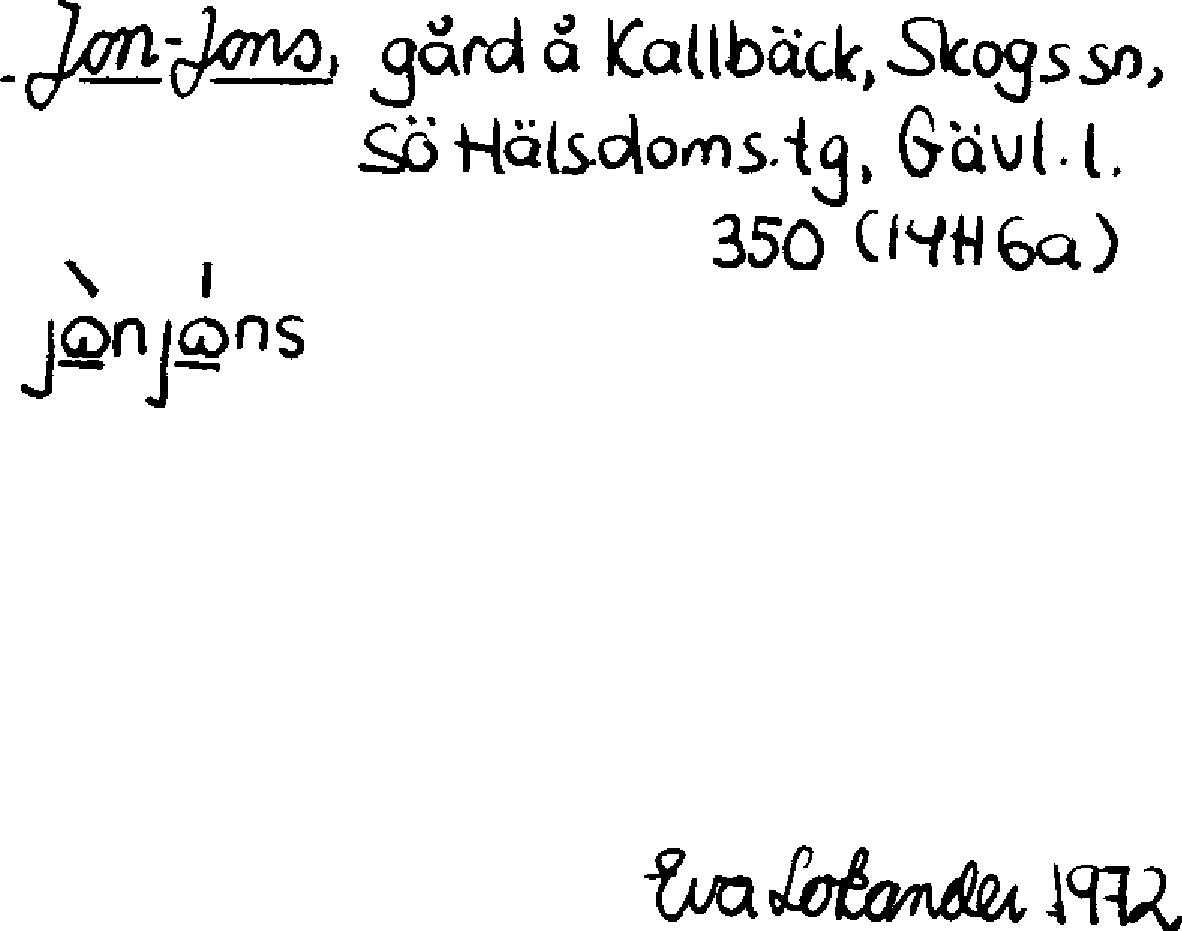 Jon-Jons, gård å Kallbäck, Skogs sn,
Sö Häls.doms.tg, Gävl.l.
350 (14H6a)
jὼ̲njώ̲ns
Eva Lokander 1972